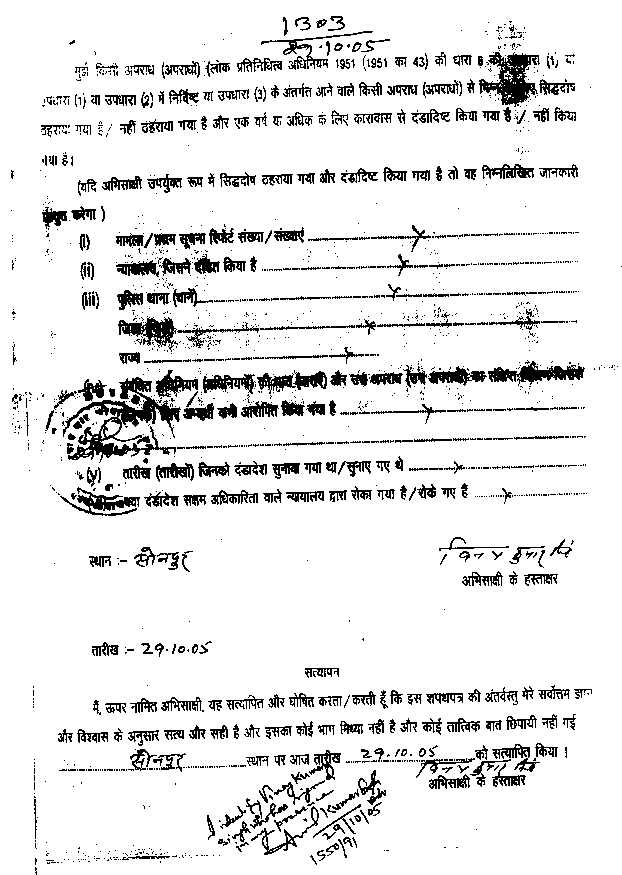 1303
29.10.05
मुझे किसी अपराध (अपराधों) (लोक प्रतिनिधित्व अधिनियम 1951 (1951 का 43) की धारा 8 की उपधारा (1) या
उपधारा (1) या उपधारा (2) में निर्दिष्ट या उपधारा (3) के अंतर्गत आने वाले किसी अपराध (अपराधों) से भिन्न सिद्धदोष
ठहराया गया है / नहीं ठहराया गया है और एक वर्ष या अधिक के लिए कारावास से दंडादिष्ट किया गया है / नहीं किया
गया है।
(यदि अभिसाक्षी उपर्युक्त रूप में सिद्धदोष ठहराया गया और दंडादिष्ट किया गया है तो वह निम्नलिखित जानकारी
प्रस्तुत करेगा )
(i) मामला/प्रथम सूचना रिपोर्ट संख्या/संख्याएं x
(ii) न्यायालय, जिसने दंडित किया है x
(iii) पुलिस थाना (थाने) x
जिला (जिले) x
राज्य x
संबंधित अधिनियम (अधिनियमों) की धारा (धाराएं) और उस अपराध (उन अपराधों) का संक्षिप्त विवरण जिसके
लिए अभ्यर्थी को आरोपित किया गया है x
(v) तारीख (तारीखों) जिनको दंडादेश सुनाया गया था/सुनाए गए थे x
क्या दंडादेश सक्षम अधिकारिता वाले न्यायालय द्वारा रोका गया है/रोके गए हैं x
स्थान :- सोनपुर
विनय कुमार सिंह
अभिसाक्षी के हस्ताक्षर
तारीख :- 29.10.05
सत्यापन
मैं, ऊपर नामित अभिसाक्षी, यह सत्यापित और घोषित करता/करती हूँ कि इस शपथपत्र की अंतर्वस्तु मेरे सर्वोत्तम ज्ञान
और विश्वास के अनुसार सत्य और सही है और इसका कोई भाग मिथ्या नहीं है और कोई तात्विक बात छिपायी नहीं गई
सोनपुर स्थान पर आज तारीख 29.10.05 को सत्यापित किया।
विनय कुमार सिंह
अभिसाक्षी के हस्ताक्षर
I identify Vinay Kumar
Singh who has signed
in my presence
Anil Kumar Singh
29/10/05
1550/91